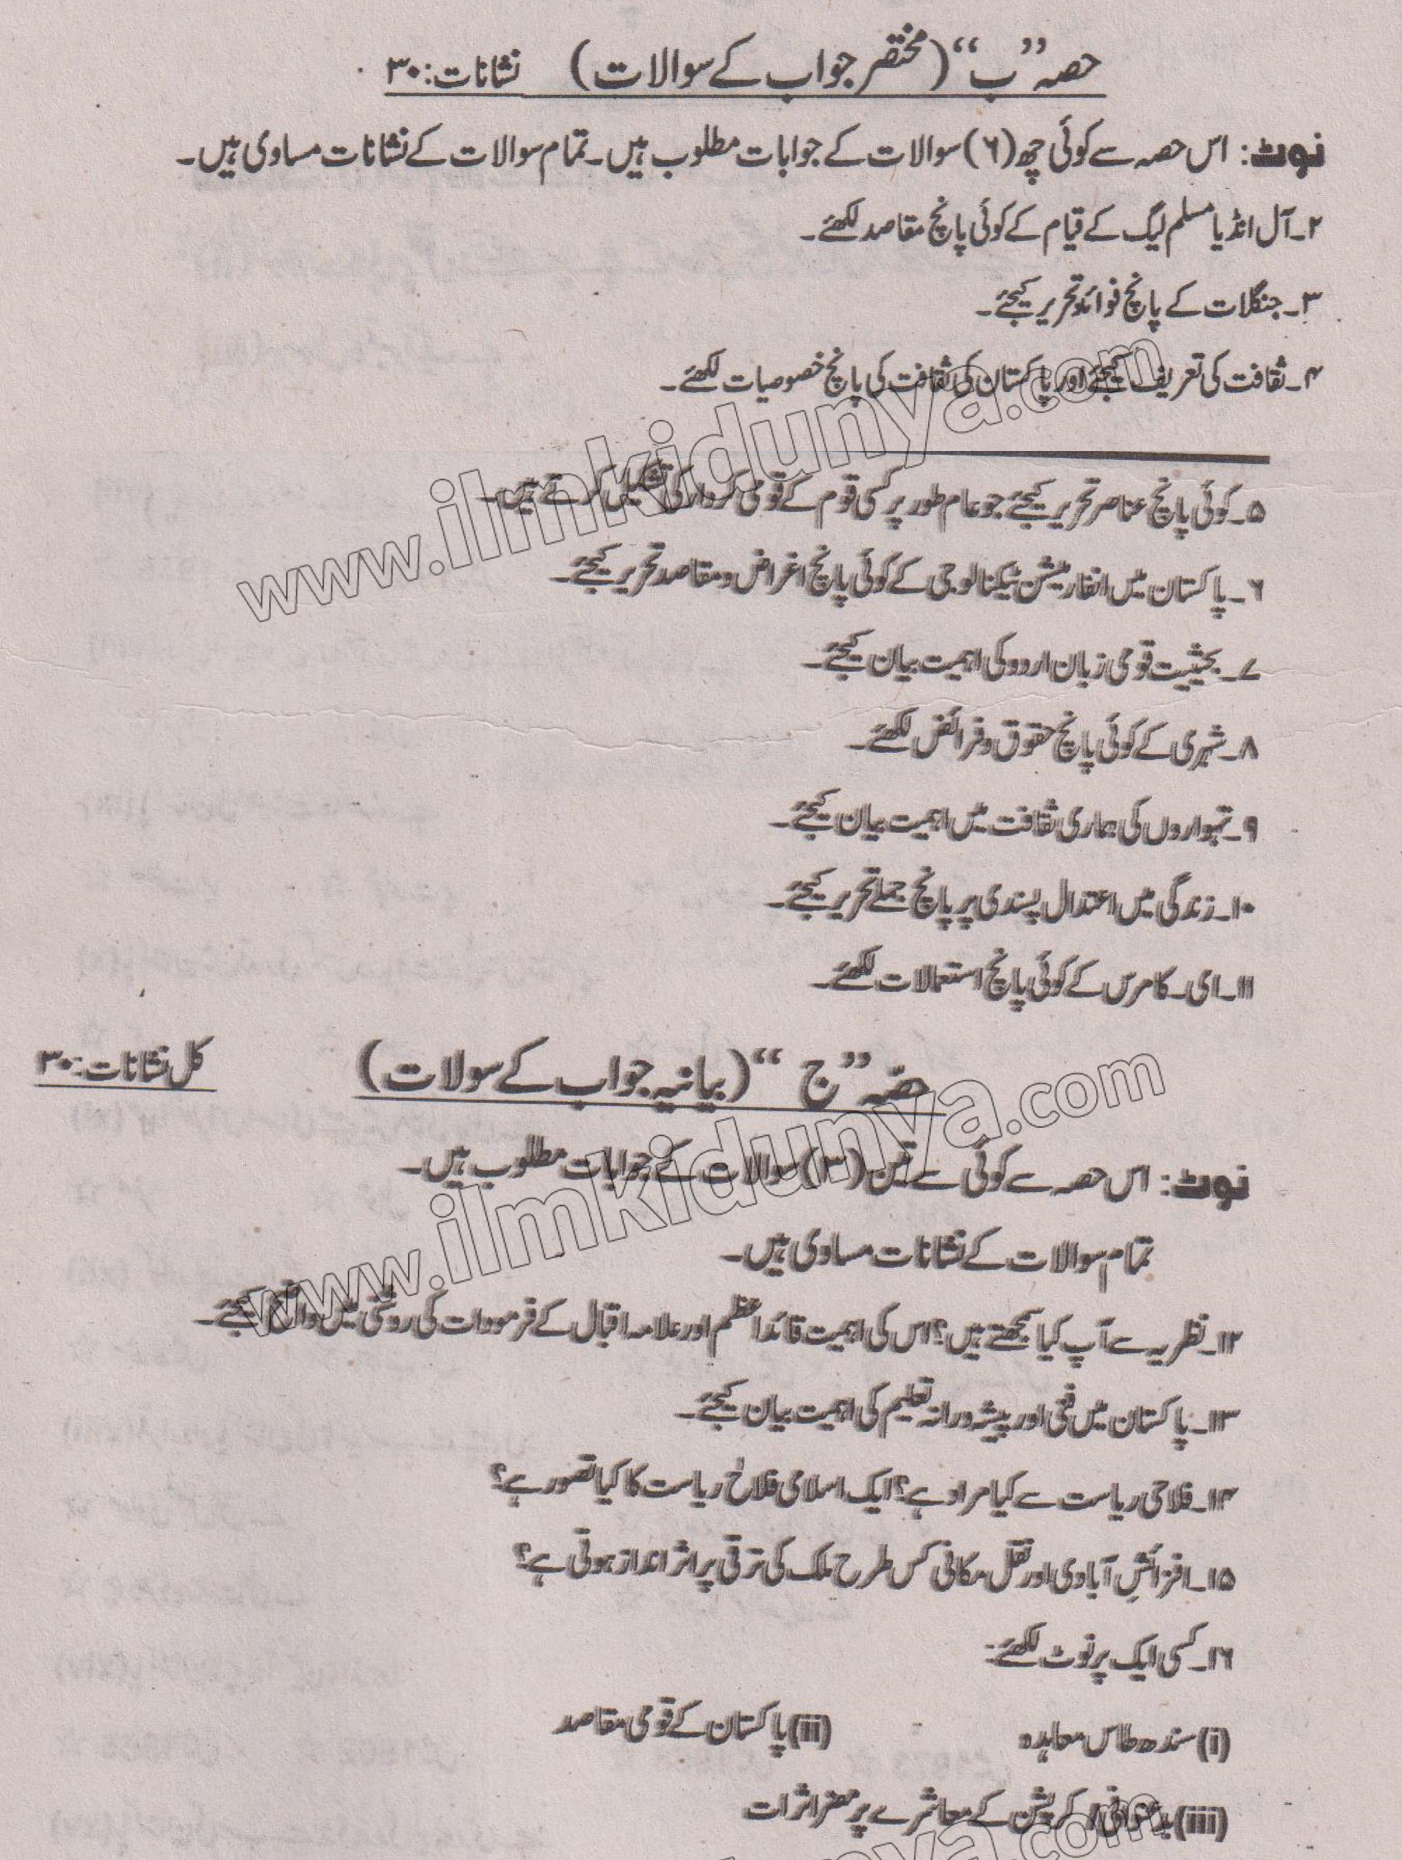 حصہ ”ب“ (مختصر جواب کے سوالات) نشانات: ۳۰
نوٹ: اس حصہ سے کوئی چھ (۶) سوالات کے جوابات مطلوب ہیں۔ تمام سوالات کے نشانات مساوی ہیں۔
۲۔ آل انڈیا مسلم لیگ کے قیام کے کوئی پانچ مقاصد لکھئے۔
۳۔ جنگلات کے پانچ فوائد تحریر کیجئے۔
۴۔ ثقافت کی تعریف کیجئے اور پاکستان کی ثقافت کی پانچ خصوصیات لکھئے۔
www.ilmkidunya.com
۵۔ کوئی پانچ عناصر تحریر کیجئے جو عام طور پر کسی قوم کے قومی کردار کی تشکیل کرتے ہیں۔
۶۔ پاکستان میں انفارمیشن ٹیکنالوجی کے کوئی پانچ اغراض و مقاصد تحریر کیجئے۔
۷۔ بحیثیت قومی زبان اردو کی اہمیت بیان کیجئے۔
۸۔ شہری کے کوئی پانچ حقوق و فرائض لکھئے۔
۹۔ تہواروں کی ہماری ثقافت میں اہمیت بیان کیجئے۔
۱۰۔ زندگی میں اعتدال پسندی پر پانچ جملے تحریر کیجئے۔
۱۱۔ ای۔ کامرس کے کوئی پانچ استعمالات لکھئے۔
حصّہ ”ج“ (بیانیہ جواب کے سولات) کل نشانات: ۳۰
نوٹ: اس حصہ سے کوئی سے تین (۳) سوالات کے جوابات مطلوب ہیں۔
تمام سوالات کے نشانات مساوی ہیں۔
www.ilmkidunya.com
۱۲۔ نظریہ سے آپ کیا سمجھتے ہیں؟ اس کی اہمیت قائداعظم اور علامہ اقبال کے فرمودات کی روشنی میں واضح کیجئے۔
۱۳۔ پاکستان میں فنی اور پیشہ ورانہ تعلیم کی اہمیت بیان کیجئے۔
۱۴۔ فلاحی ریاست سے کیا مراد ہے؟ ایک اسلامی فلاحی ریاست کا کیا تصور ہے؟
۱۵۔ افزائشِ آبادی اور نقل مکانی کس طرح ملک کی ترقی پر اثر انداز ہوتی ہے؟
۱۶۔ کسی ایک پر نوٹ لکھئے:
(i) سندھ طاس معاہدہ (ii) پاکستان کے قومی مقاصد
(iii) بدعنوانی/ کرپشن کے معاشرے پر مضر اثرات